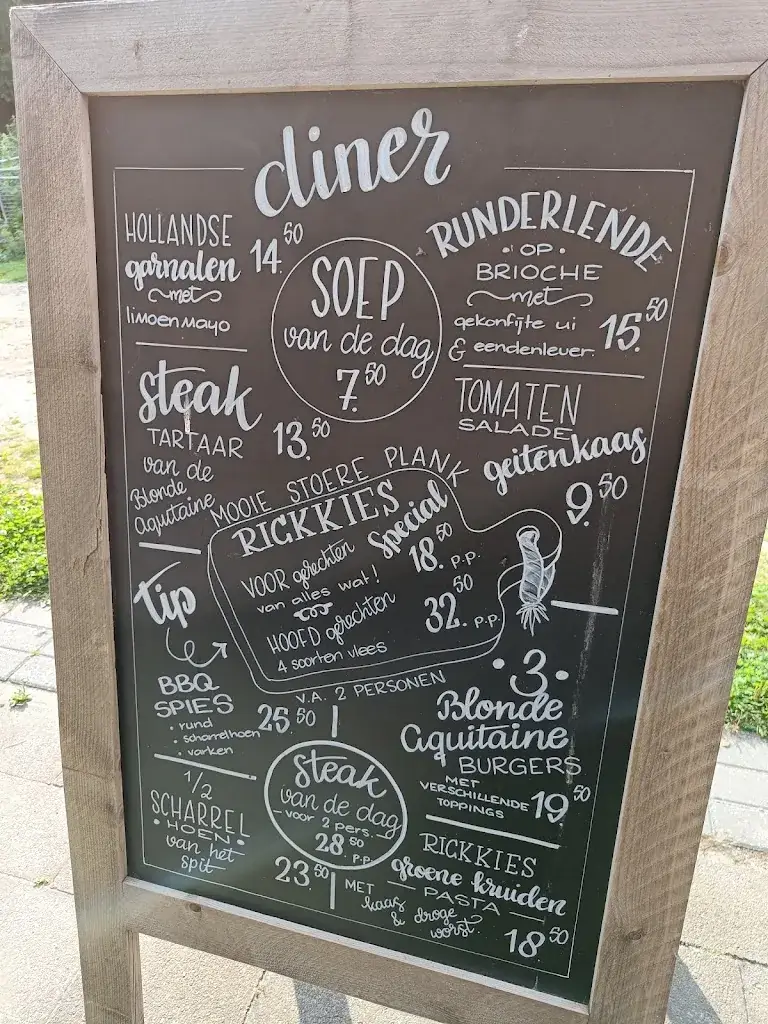 diner
HOLLANDSE
garnalen
met
limoenmayo
14.50
SOEP
van de dag
7.50
RUNDERLENDE
• OP •
BRIOCHE
met
gekonfijte ui
& eendenlever.
15.50
steak
TARTAAR
van de
Blonde
Aquitaine
13.50
TOMATEN
SALADE
geitenkaas
9.50
MOOIE STOERE PLANK
RICKKIES
Special
VOOR gerechten
van alles wat!
18.50 p.p.
HOOFD gerechten
4 soorten vlees
32.50 p.p.
V.A. 2 PERSONEN
tip
BBQ
SPIES
• rund
• scharrelhoen
• varken
25.50
• 3 •
Blonde
Aquitaine
BURGERS
MET
VERSCHILLENDE
TOPPINGS
19.50
1/2
SCHARREL
• HOEN •
van het
spit
23.50
Steak
van de dag
- voor 2 pers. -
28.50 p.p.
RICKKIES
groene kruiden
PASTA
MET
kaas
& droge
worst.
18.50